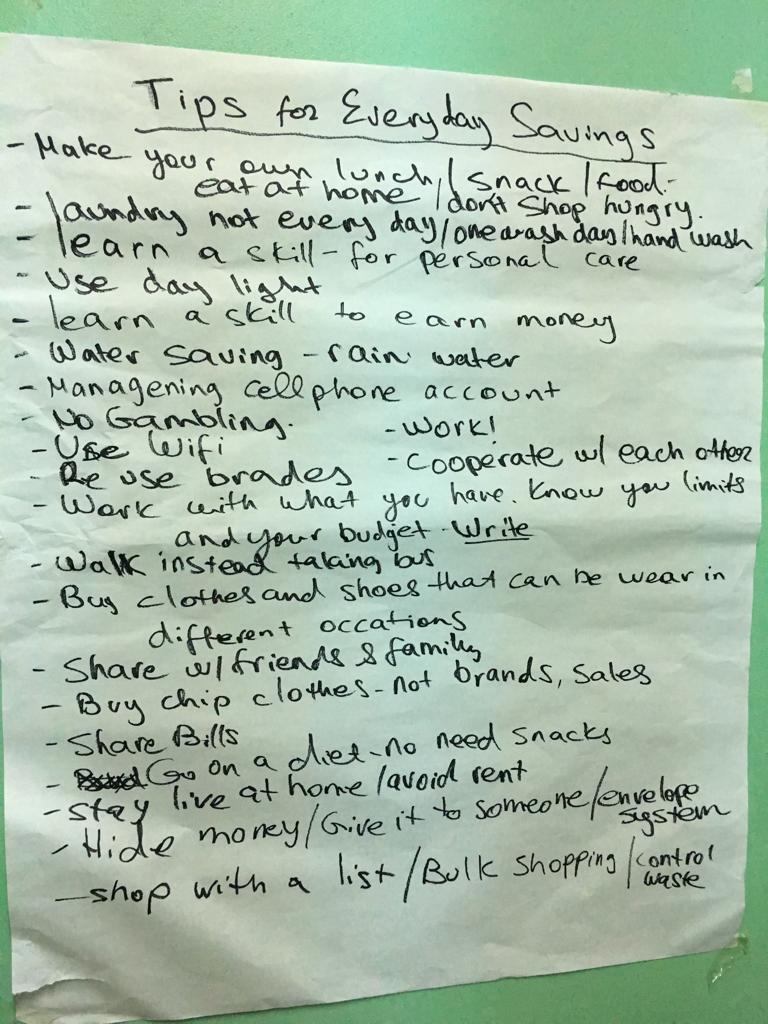 Tips for Everyday Savings
- Make your own lunch / snack / food.-
eat at home / don't shop hungry.
- laundry not every day / one wash day / hand wash
- learn a skill - for personal care
- Use day light
- learn a skill to earn money
- Water saving - rain water
- Managening cellphone account
- No Gambling.
- Work!
- Use Wifi
- cooperate w/ each other
- Re use brades
- Work with what you have. Know you limits
and your budget - Write
- Walk instead taking bus
- Buy clothes and shoes that can be wear in
different occations
- Share w/ friends & family
- Buy chip clothes - not brands, sales
- Share Bills
- Go on a diet - no need snacks
- stay live at home / avoid rent
- Hide money / Give it to someone / envelope
system
- shop with a list / Bulk shopping / control
waste